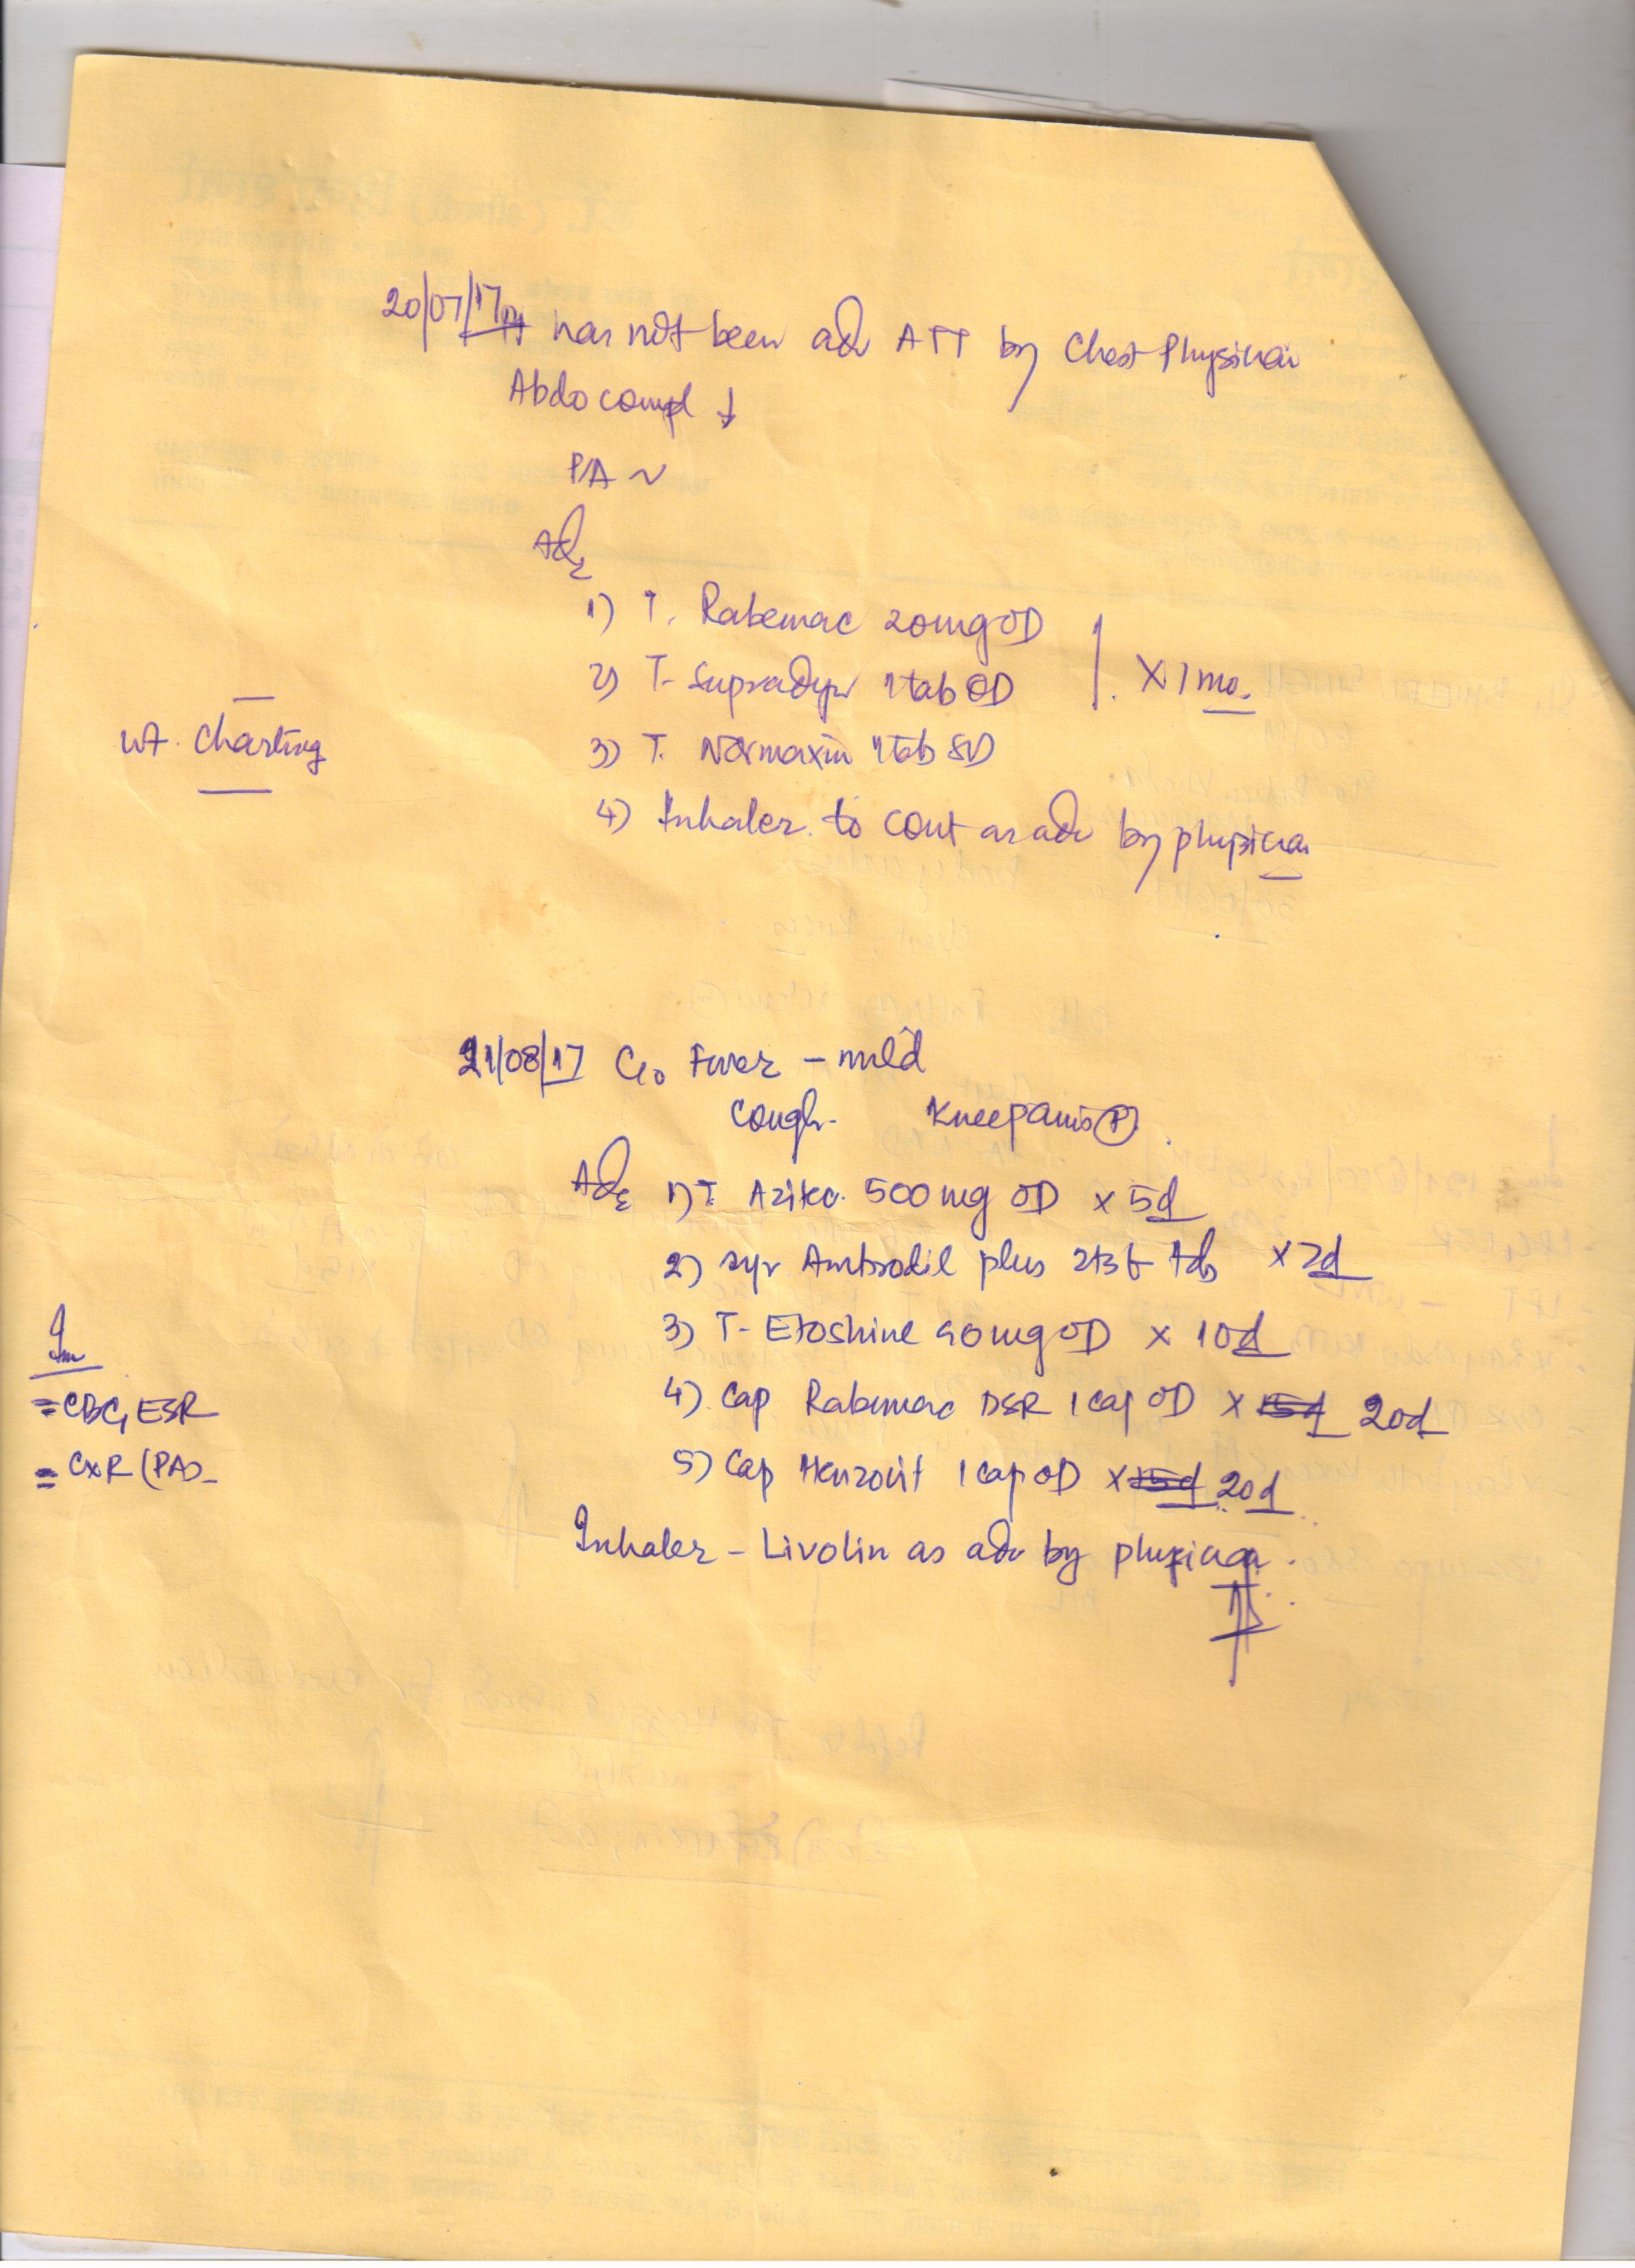 20/07/17 Pt has not been adv ATT by Chest Physician
Abdo compl +
P/A ~
Adv
1) T. Rabemac 20mg OD
2) T. Supradyn 1tab OD
x 1 mo.
wt. Charting
3) T. Normaxin 1tab
4) Inhaler to cont as adv by physician
21/08/17 C/o Fever - mild
Cough. Kneepains (P)
Adv 1) T. 500mg OD x 5d
2) syr Ambrodil plus tds
3) T- Etoshine 90mg OD x 10d
Inv
4) Cap Rabemac DSR 1 cap OD x 15d 20d
= CBC, ESR
5) Cap 1 cap OD x 15d 20d
= CxR (PA)-
Inhaler - Livolin as adv by physician.